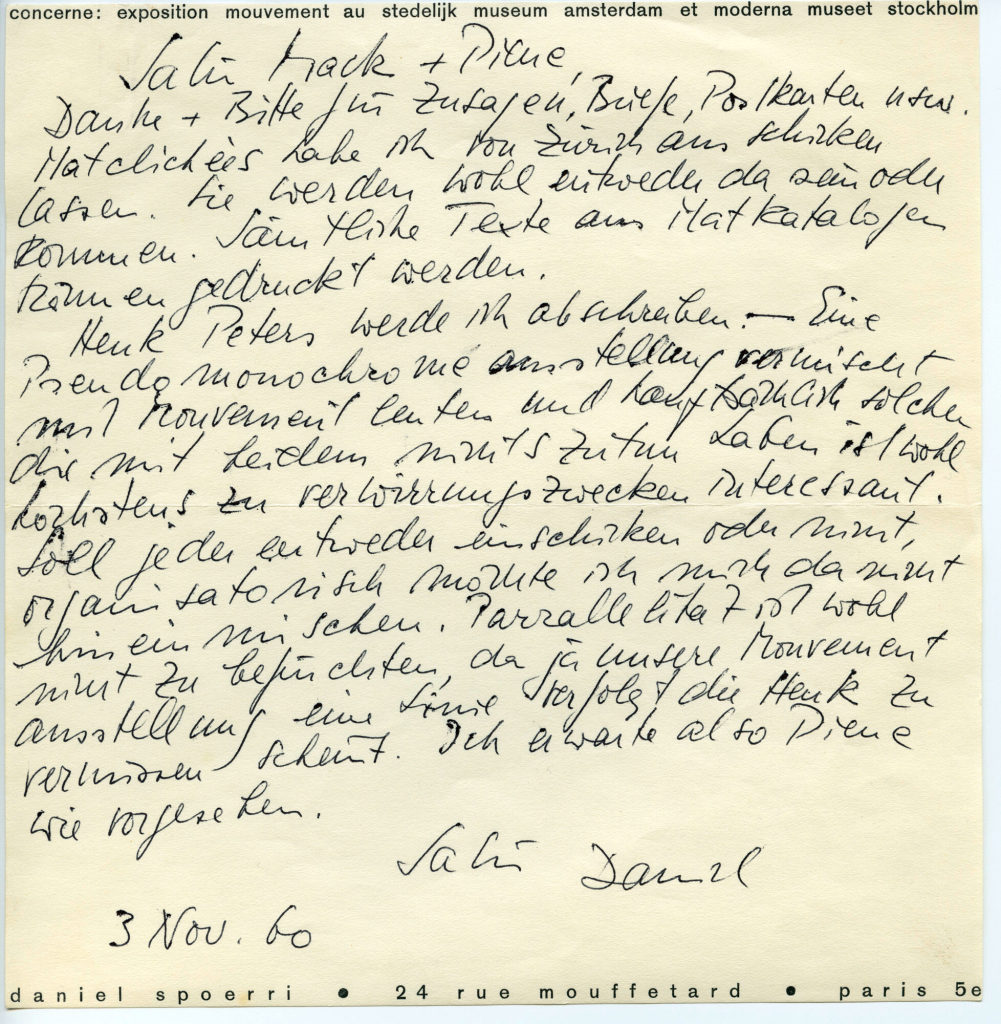 concerne: exposition mouvement au stedelijk museum amsterdam et moderna museet stockholm
Salü Mack + Piene,
Danke + Bitte für Zusagen, Briefe, Postkarten usw.
Matclichées habe ich von Zürich aus schicken
lassen. Sie werden wohl entweder da sein oder
kommen. Sämtliche Texte aus Matkatalogen
können gedruckt werden.
Henk Peters werde ich abschreiben. — Eine
Pseudomonochrome ausstellung vermischt
mit Mouvement leuten und hauptsächlich solchen
die mit beidem nichts zutun haben ist wohl
höchstens zu verwirrungszwecken interessant.
Soll jeder entweder einschicken oder nicht,
organisatorisch möchte ich mich da nicht
hineinmischen. Parzallelität ist wohl
nicht zu befürchten, da ja unsere Mouvement
ausstellung eine Linie verfolgt die Henk zu
vermissen scheint. Ich erwarte also Piene
wie vorgesehen.
Salü Daniel
3 Nov. 60
daniel spoerri • 24 rue mouffetard • paris 5e